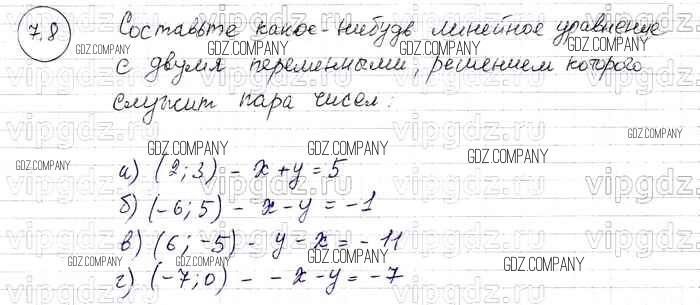 7.8 Составьте какое-нибудь линейное уравнение
с двумя переменными, решением которого
служит пара чисел:
а) (2; 3) - x + y = 5
б) (-6; 5) - x - y = -1
в) (6; -5) - y - x = -11
г) (-7; 0) - - x - y = -7
GDZ.COMPANY
vipgdz.ru